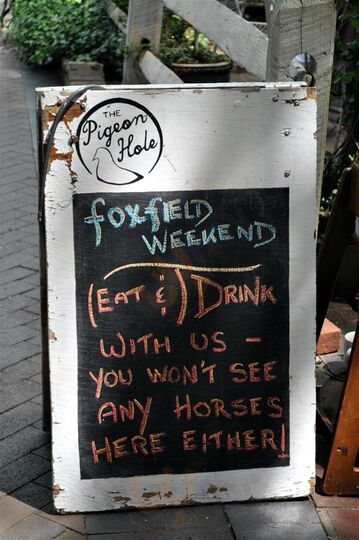 THE
Pigeon
Hole
foxfIELD
WEEKEND
(EAT &) DRINK
WITH US -
YOU WON'T SEE
ANY HORSES
HERE EITHER!